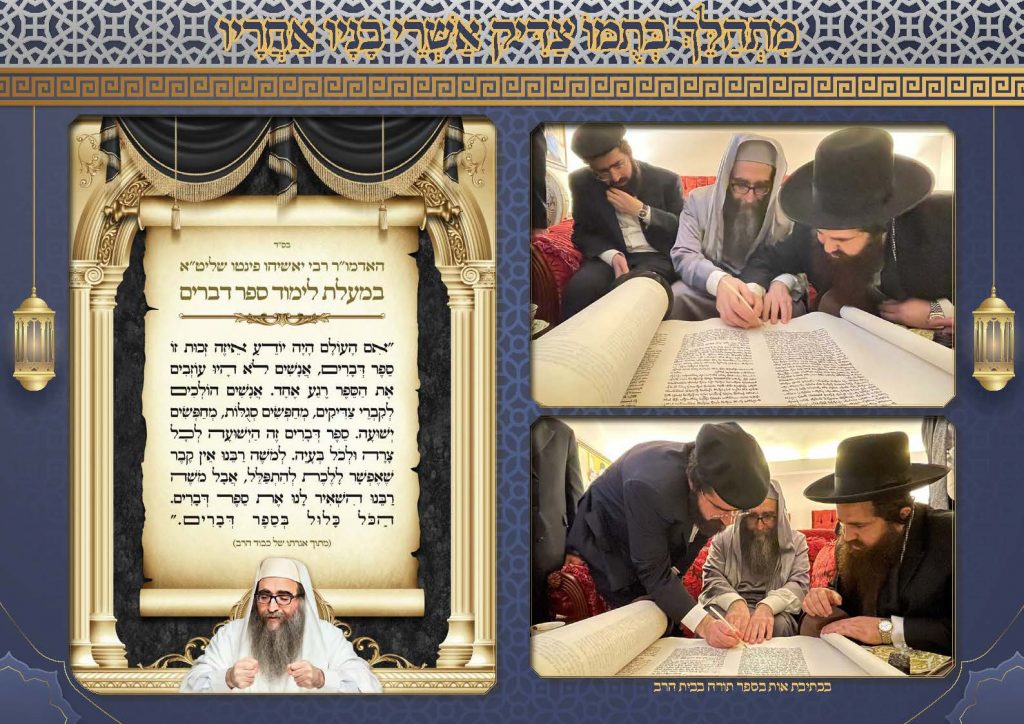 מִתְהַלֵּךְ בְּתֻמּוֹ צַדִּיק אַשְׁרֵי בָנָיו אַחֲרָיו
בס"ד
האדמו"ר רבי יאשיהו פינטו שליט"א
במעלת לימוד ספר דברים
"אִם הָעוֹלָם הָיָה יוֹדֵעַ אֵיזֶה זְכוּת זוֹ
סֵפֶר דְּבָרִים, אֲנָשִׁים לֹא הָיוּ עוֹזְבִים
אֶת הַסֵּפֶר רֶגַע אֶחָד. אֲנָשִׁים הוֹלְכִים
לְקִבְרֵי צַדִּיקִים, מְחַפְּשִׂים סְגֻלּוֹת, מְחַפְּשִׂים
יְשׁוּעָה. סֵפֶר דְּבָרִים זֶה הַיְשׁוּעָה לְכָל
צָרָה וּלְכֹל בְּעָיָה. לְמֹשֶׁה רַבֵּנוּ אֵין קֶבֶר
שֶׁאֶפְשָׁר לָלֶכֶת לְהִתְפַּלֵּל, אֲבָל מֹשֶׁה
רַבֵּנוּ הִשְׁאִיר לָנוּ אֶת סֵפֶר דְּבָרִים.
הַכֹּל כָּלוּל בְּסֵפֶר דְּבָרִים."
(מתוך אגרתו של כבוד הרב)
בכתיבת אות בספר תורה בבית הרב